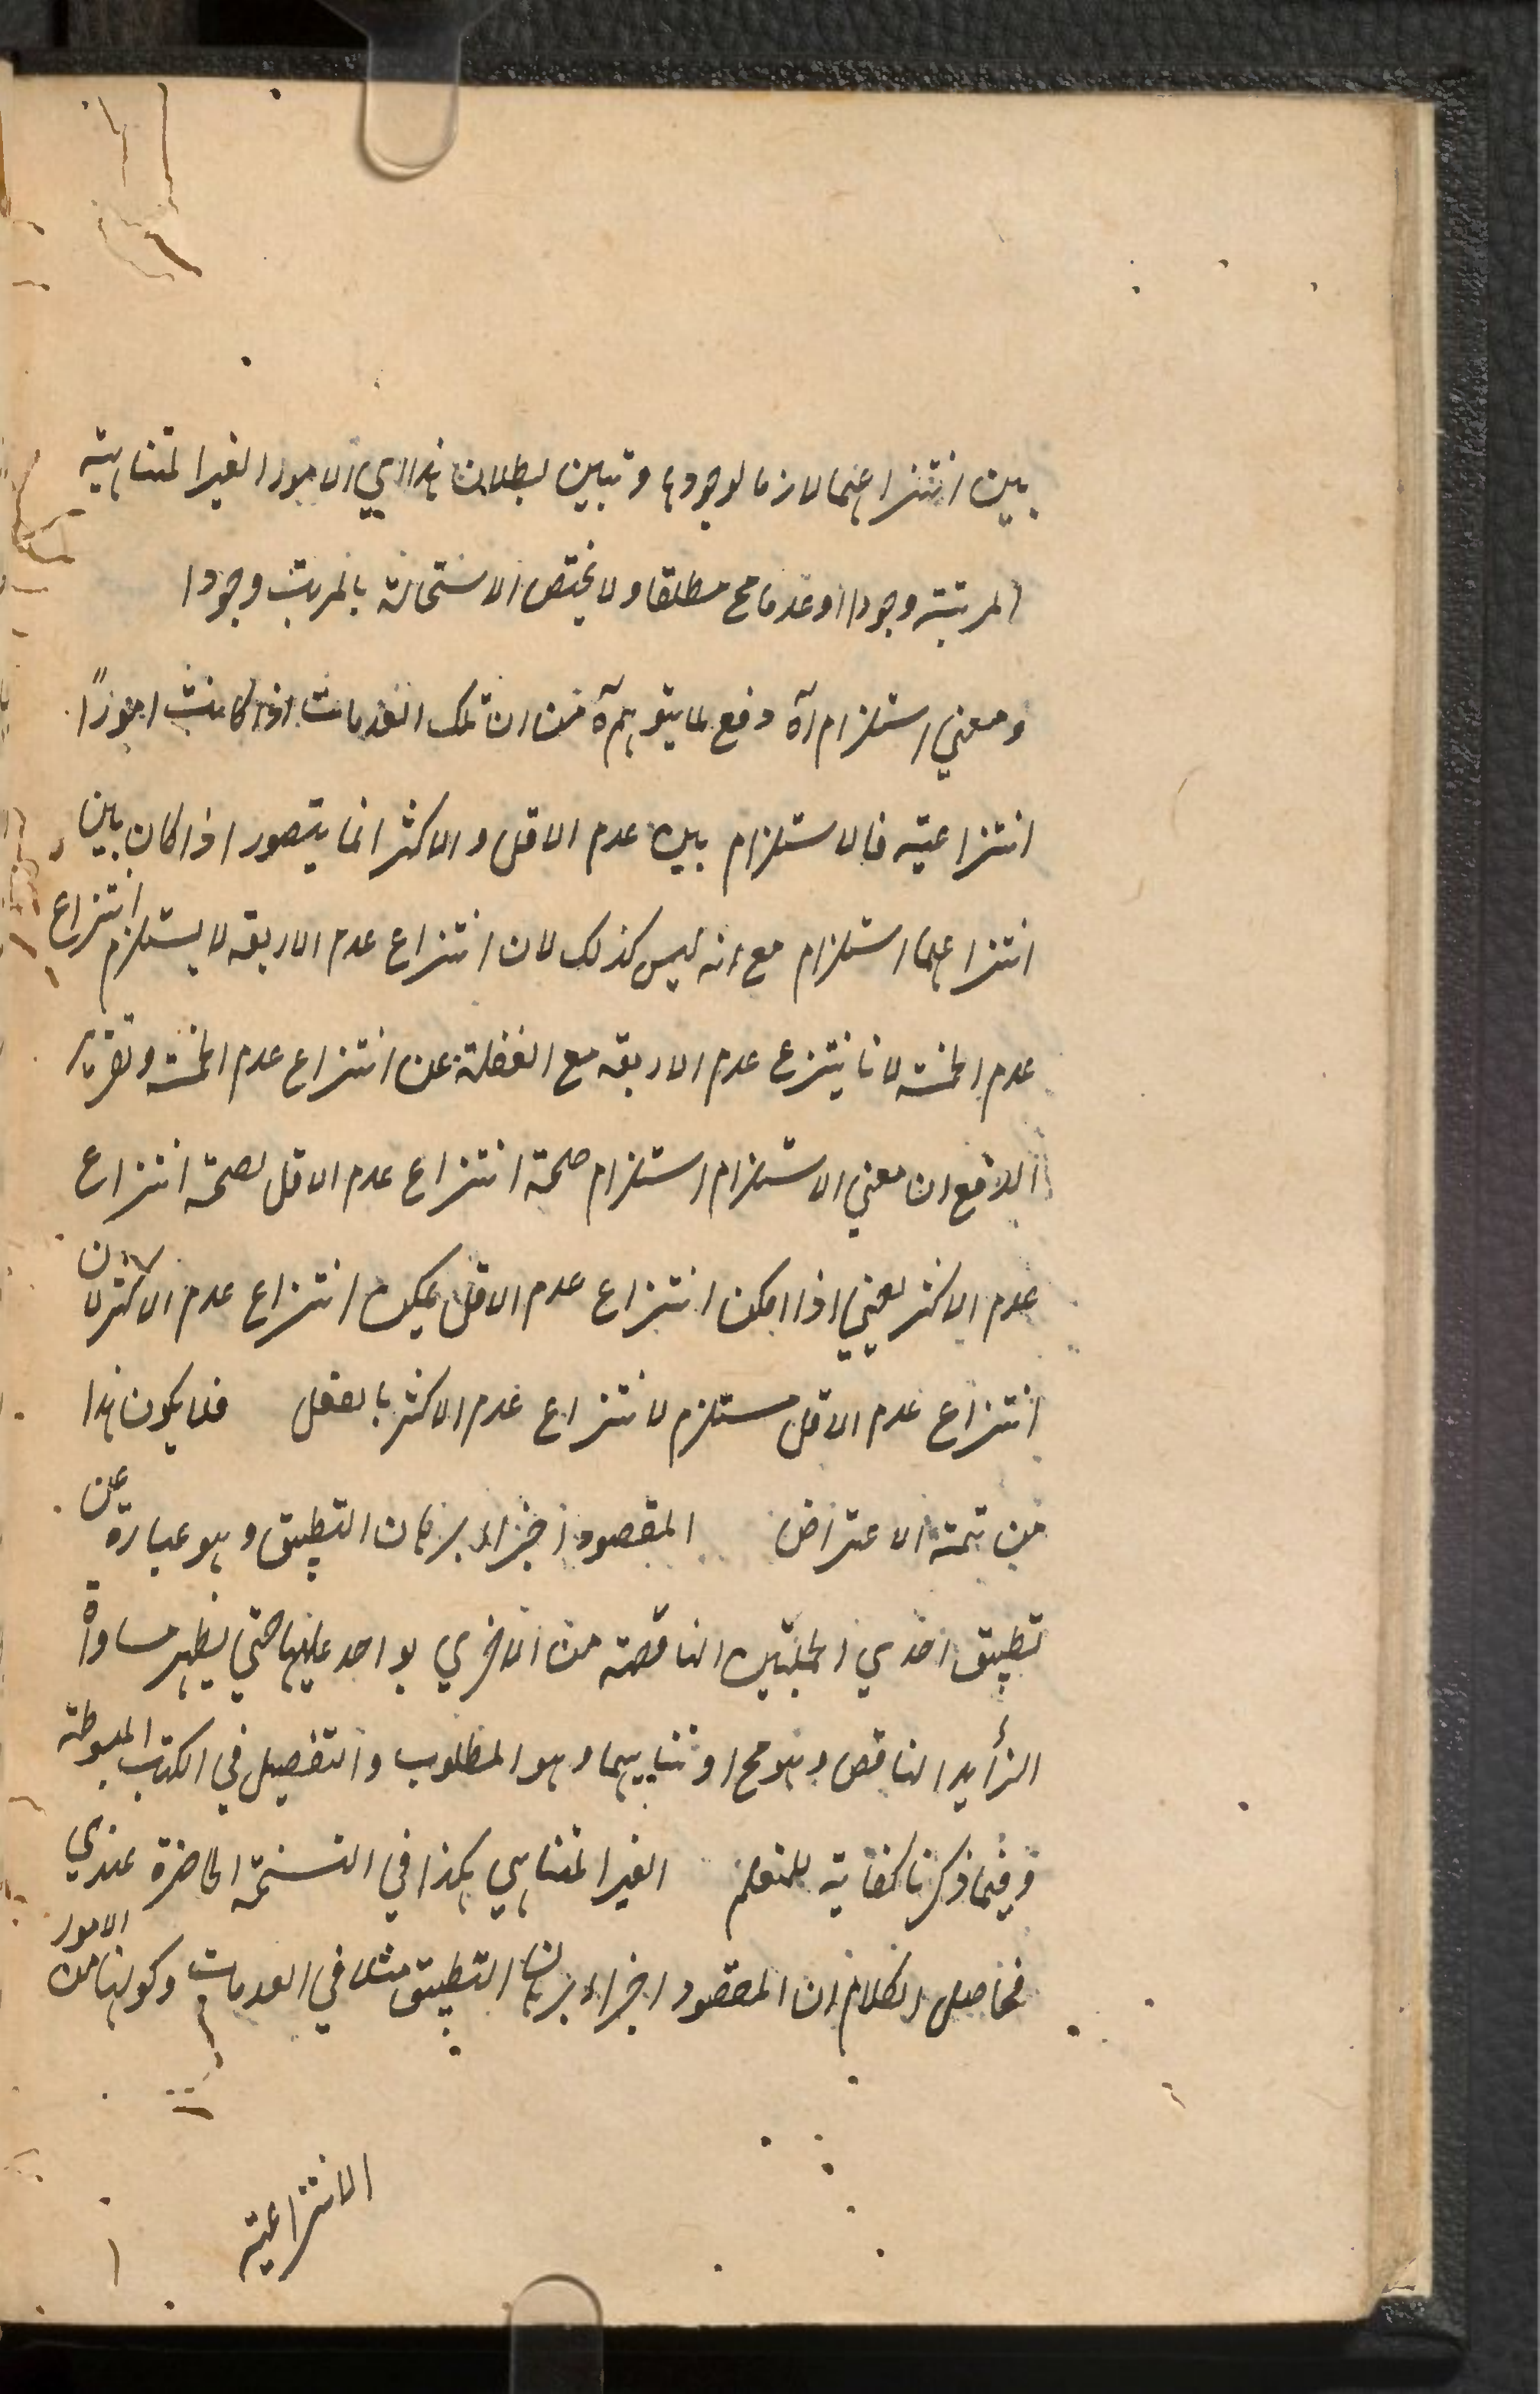 بين انتزاعهما لازما لوجودها وتبين بطلان هذا اي الامور الغير المتناهية
المرتبة وجودا او عدما مح مطلقا ولا يختص الاستحالة بالمرتب وجودا
ومعني استلزام آه دفع لما يتوهم آه من ان تلك العدمات اذا كانت امورًا
انتزاعية فالاستلزام بين عدم الاقل والاكثر انما يتصور اذا كان بين
انتزاعهما استلزام مع انه ليس كذلك لان انتزاع عدم الاربعة لا يستلزم انتزاع
عدم الخمسة لانا ينتزع عدم الاربعة مع الغفلة عن انتزاع عدم الخمسة وتقرير
الدفع ان معني الاستلزام استلزام صحة انتزاع عدم الاقل لصحة انتزاع
عدم الاكثر يعني اذا امكن انتزاع عدم الاقل يمكن انتزاع عدم الاكثر لا ان
انتزاع عدم الاقل مستلزم لانتزاع عدم الاكثر بالفعل فلا يكون هذا
من تتمة الاعتراض المقصود اجراء برهان التطبيق وهو عبارة عن
تطبيق احدي الجملتين الناقصة من الاخري بواحد عليها حتي يظهر مساواة
الزأيد الناقص وهو مح او تناهيهما وهو المطلوب والتفصيل في الكتب المبسوطة
وفيما ذكرنا كفاية للمتعلم الغير المتناهي هكذا في النسخة الحاضرة عندي
فحاصل الكلام ان المقصود اجراء برهان التطبيق مثلا في العدمات وكونها من الامور
الانتزاعية